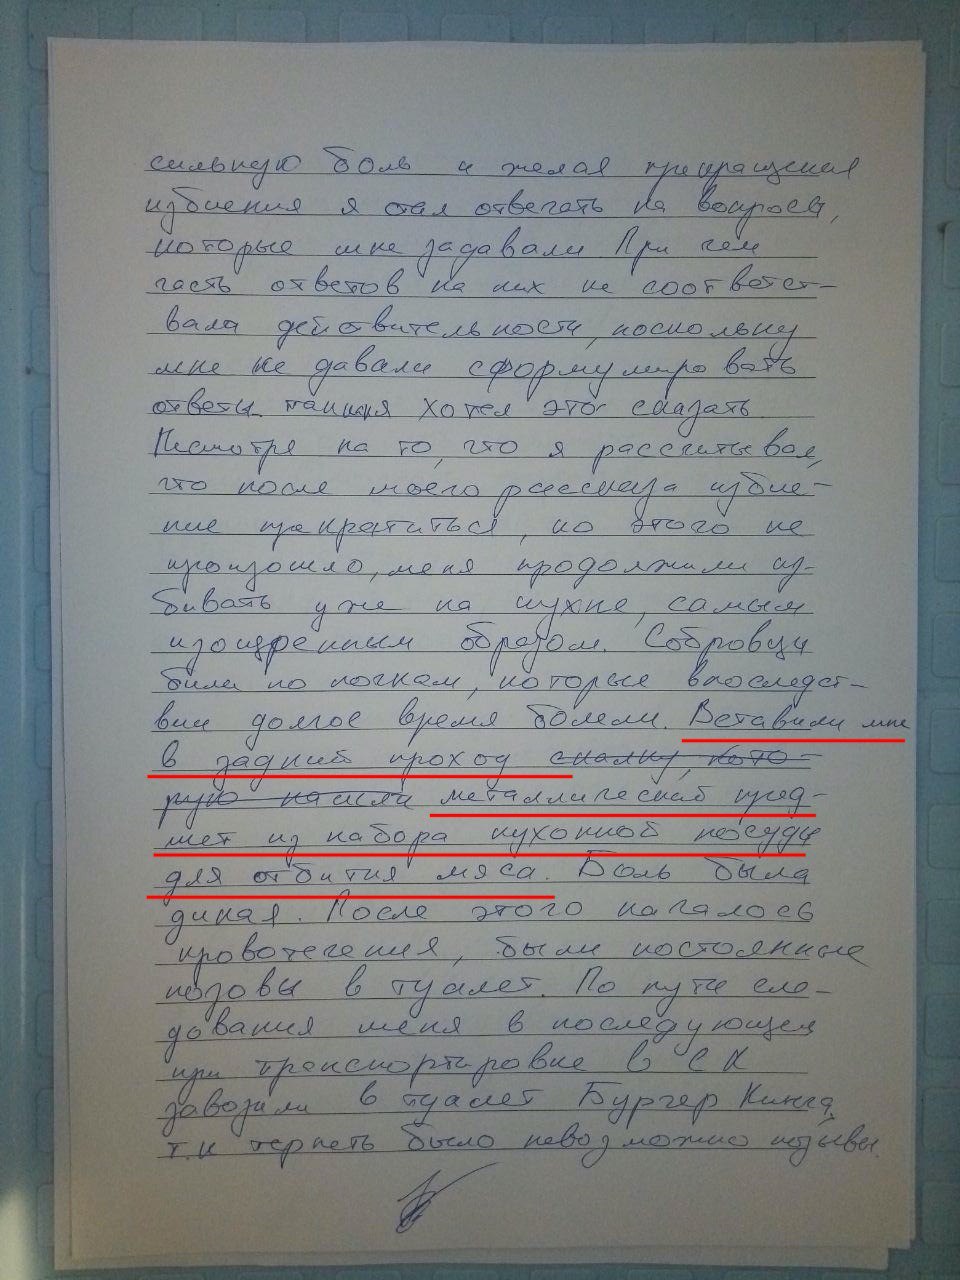 сильную боль и желая прекращения
избиения я стал отвечать на вопросы,
которые мне задавали. При чем
часть ответов на них не соответст-
вала действительности, поскольку
мне не давали сформулировать
ответы так как я хотел это сказать.
Несмотря на то, что я рассчитывал,
что после моего рассказа избие-
ние прекратиться, но этого не
произошло, меня продолжили из-
бивать уже на кухне, самым
изощренным образом. Собровцы
били по почкам, которые впоследст-
вии долгое время болели. Вставили мне
в задний проход скалку, кото-
рую нашли металлический пред-
мет из набора кухонной посуды
для отбития мяса. Боль была
дикая. После этого началось
кровотечения, были постоянные
позовы в туалет. По пути сле-
дования меня в последующем
при транспортировке в СК
завозили в туалет Бургер Кинга,
т.к терпеть было невозможно позывы.